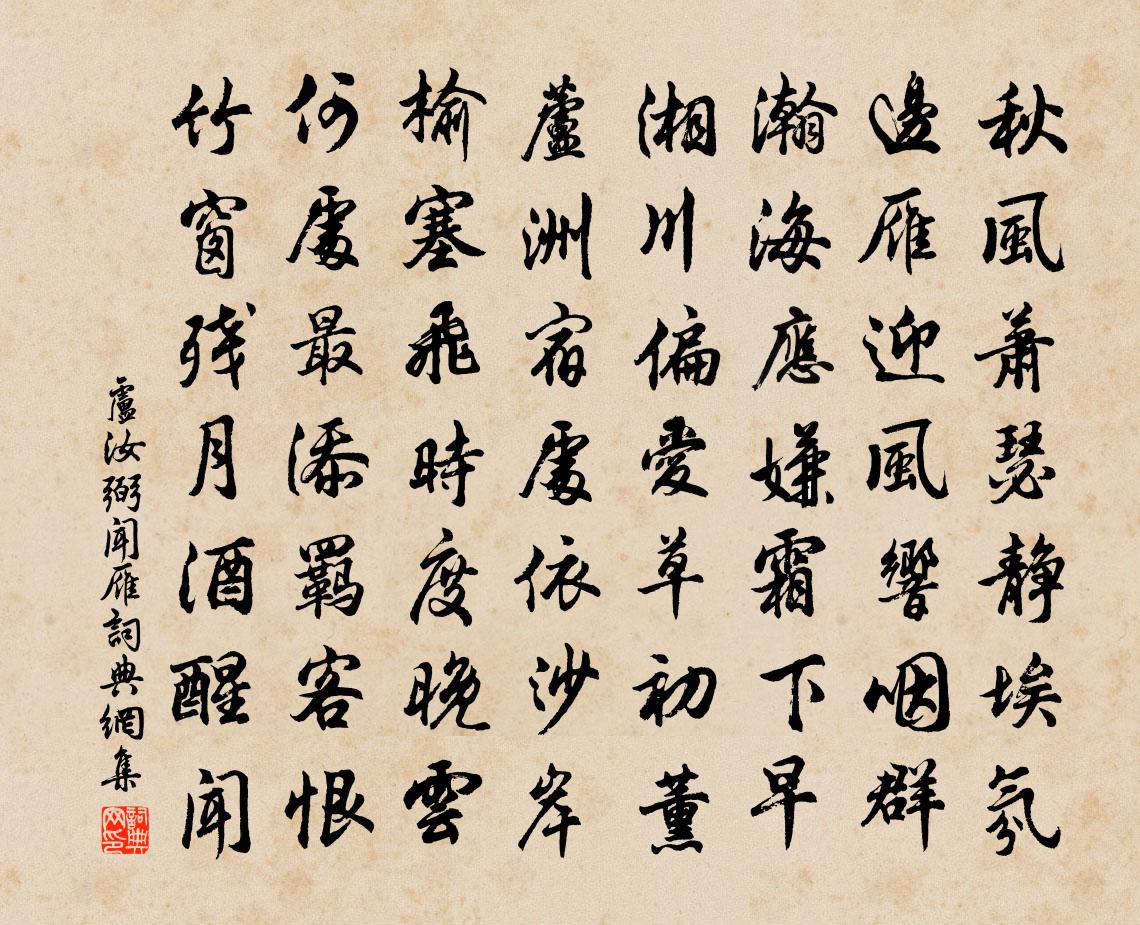 秋風蕭瑟靜埃氛
邊雁迎風響咽群
瀚海應嫌霜下早
湘川偏愛草初薰
蘆洲宿處依沙岸
榆塞飛時度晚雲
何處最添羈客恨
竹窗残月酒醒聞
盧汝弼聞雁詞典網集
詞典
网印